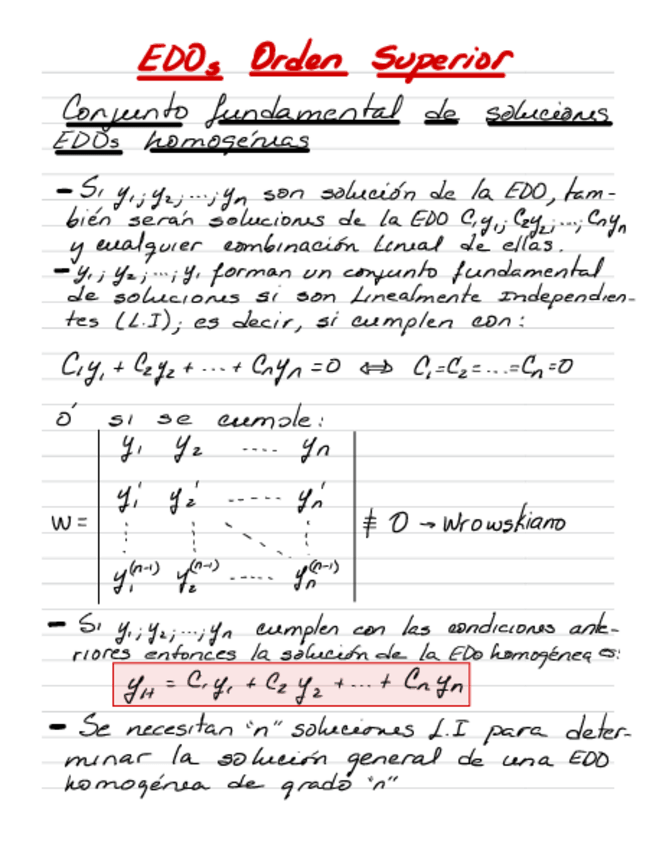 EDOs Orden Superior
Conjunto fundamental de soluciones
EDOs homogénias
- Si y₁; y₂; ...; yₙ son solución de la EDO, tam-
bién serán soluciones de la EDO C₁y₁; C₂y₂; ...; Cₙyₙ
y cualquier combinación lineal de ellas.
- y₁; y₂; ...; y₁ forman un conjunto fundamental
de soluciones si son Linealmente Independien-
tes (L.I); es decir, si cumplen con:
C₁y₁ + C₂y₂ + ... + Cₙyₙ = 0 ⟺ C₁=C₂=...=Cₙ=0
ó si se cumple:
y₁ y₂ .... yₙ
y₁' y₂' ..... yₙ'
W = ≢ 0 → Wrowskiano
y₁⁽ⁿ⁻¹⁾ y₂⁽ⁿ⁻¹⁾ ..... yₙ⁽ⁿ⁻¹⁾
- Si y₁; y₂; ...; yₙ cumplen con las condiciones ante-
riores entonces la solución de la EDO homogénea es:
y_H = C₁y₁ + C₂y₂ + ... + Cₙyₙ
- Se necesitan "n" soluciones L.I para deter-
minar la solución general de una EDO
homogénea de grado "n"